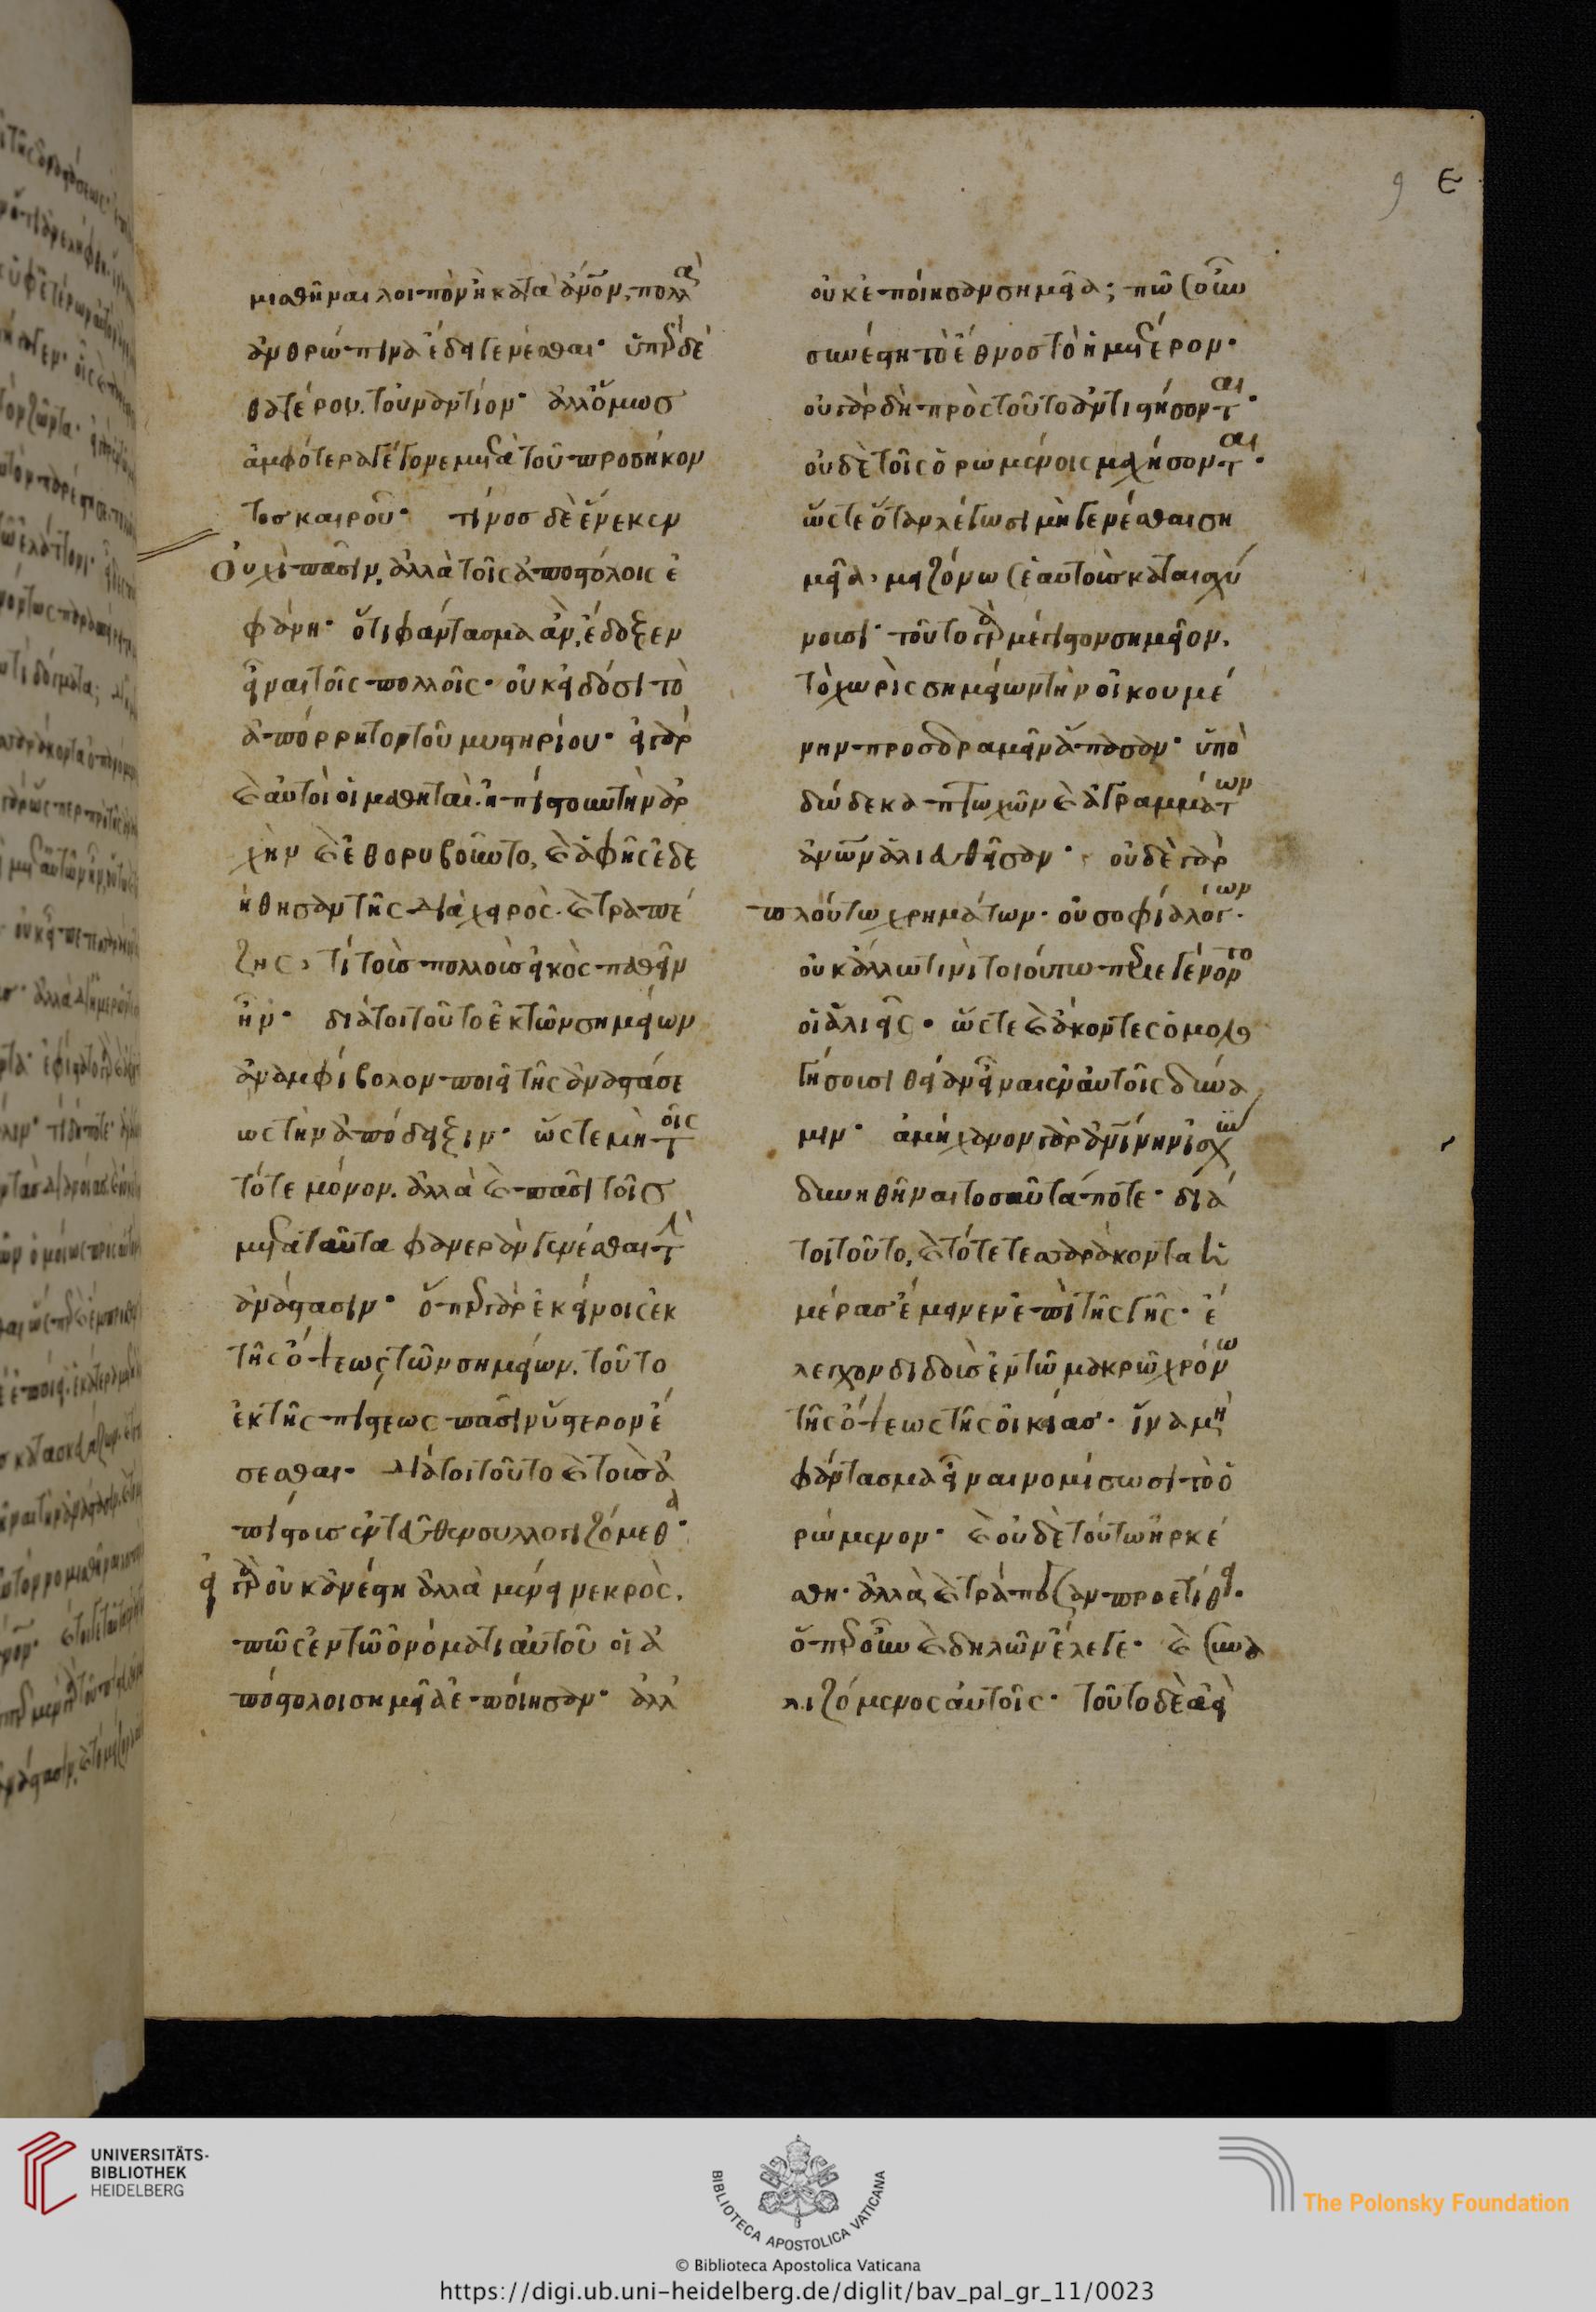 μιαθῆναι λοιπὸν ἢ κατὰ ἄνον, πολλὰ
ἀνθρώπινα ἔδει γενέσθαι· ὑπὲρ δὲ
θατέρου, τοὐναντίον· ἀλλ' ὅμως
ἀμφότερα γέγονε μετὰ τοῦ προσήκον
τος καιροῦ· τίνος δὲ ἕνεκεν
Οὐχὶ πᾶσιν, ἀλλὰ τοῖς ἀποστόλοις ἐ
φάνη· ὅτι φάντασμα ἂν, ἔδοξεν
εἶναι τοῖς πολλοῖς· οὐκ εἰδόσι τὸ
ἀπόρρητον τοῦ μυστηρίου· εἰ γὰρ
καὶ αὐτοὶ οἱ μαθηταὶ. ἠπίστουν τὴν ἀρ
χὴν καὶ ἐθορυβοῦντο, καὶ ἁφῆς ἐδε
ήθησαν τῆς διὰ χειρὸς. καὶ τραπέ
ζης, τί τοὺς πολλοὺς εἰκὸς παθεῖν
ἦν· διάτοι τοῦτο ἐκ τῶν σημείων
ἀναμφίβολον ποιεῖ τῆς ἀναστάσε
ως τὴν ἀπόδειξιν· ὥστε μὴ τοῖς
τότε μόνον. ἀλλὰ καὶ πᾶσι τοῖς
μετὰ ταῦτα φανερὰν γενέσθαι τὴν
ἀνάστασιν· ὅπερ γὰρ ἐκείνοις ἐκ
τῆς ὄψεως τῶν σημείων, τοῦτο
ἐκ τῆς πίστεως πᾶσιν ὕστερον ἔ
σεσθαι· διάτοι τοῦτο καὶ τοὺς ἀ
πίστους ἐντεῦθεν συλλογιζόμεθα·
εἰ γὰρ οὐκ ἀνέστη ἀλλὰ μένει νεκρὸς.
πῶς ἐν τῶ ὀνόματι αὐτοῦ οἱ ἀ
πόστολοι σημεῖα ἐποίησαν· ἀλλ'
ε
οὐκ ἐποίησαν σημεῖα; πῶς οὖν
συνέστη τὸ ἔθνος τὸ ἡμέτερον·
οὐ γὰρ δὴ πρὸς τοῦτο ἀντιστήσονται·
οὐδὲ τοῖς ὁρωμένοις μαχήσονται·
ὥστε ὅταν λέγωσι μὴ γενέσθαι ση
μεῖα, μειζόνως ἑαυτοὺς καταισχύ
νουσι· τοῦτο γὰρ μέγιστον σημεῖον,
τὸ χωρὶς σημείων τὴν οἰκουμέ
νην προσδραμεῖν ἅπασαν· ὑπὸ
δώδεκα πτωχῶν καὶ ἀγραμμάτων
ἀνων ἁλιευθεῖσαν· οὐδὲ γὰρ
πλούτω χρημάτων· οὐ σοφία λόγων·
οὐκ ἄλλω τινὶ τοιούτω περιεγένοντο
οἱ ἁλιεῖς· ὥστε καὶ ἄκοντες ὁμολο
γήσουσι θείαν εἶναι ἐν αὐτοῖς δύνα
μιν· ἀμήχανον γὰρ ἀνίνην ἰσχὺν
δυνηθῆναι τοσαῦτά ποτε· διά
τοι τοῦτο, καὶ τότε τεσσαράκοντα ἡ
μέρας ἔμεινεν ἐπὶ τῆς γῆς· ἔ
λεγχον διδοὺς ἐν τῶ μακρῶ χρόνω
τῆς ὄψεως τῆς οἰκείας· ἵνα μὴ
φάντασμα εἶναι νομίσωσι τὸ ὁ
ρώμενον· καὶ οὐδὲ τούτω ἠρκέ
σθη· ἀλλὰ καὶ τράπεζαν προετίθει·
ὅπερ οὖν καὶ δηλῶν ἔλεγε· καὶ συνα
λιζόμενος αὐτοῖς· τοῦτο δὲ ἀεὶ
UNIVERSITÄTS-
BIBLIOTHEK
HEIDELBERG
BIBLIOTECA APOSTOLICA VATICANA
The Polonsky Foundation
© Biblioteca Apostolica Vaticana
https://digi.ub.uni-heidelberg.de/diglit/bav_pal_gr_11/0023